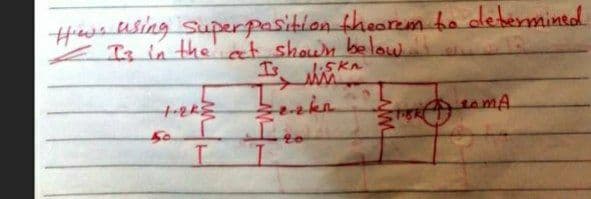 H.w: using superposition theorem to determined
I3 in the cct shown below
I3 1.5KΩ
1.2K 2.2kΩ 1.8K 20mA
50 20